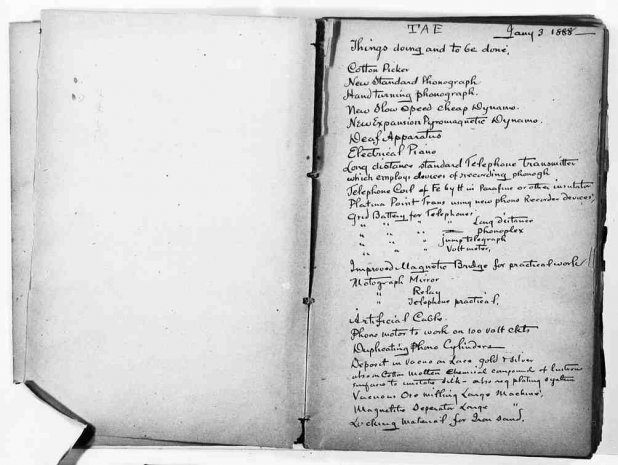 TAE Jany 3 1888
Things doing and to be done,
Cotton Picker
New Standard Phonograph
Hand turning phonograph.
New Slow Speed cheap Dynamo.
New Expansion Pyromagnetic Dynamo.
Deaf Apparatus
Electrical Piano
Long distance standard Telephone Transmitter
which employs devices of recording phonogh
Telephone Coil of Fe by tt in Parafine or other insulator
Platina Point Trans using new phono Recorder devices,
Grd Battery for Telephones.
" " " Long distance
" " " Phonoplex
" " " jump telegraph
" " Voltmeter.
Improved Magnetic Bridge for practical work
Motograph Mirror
" Relay
" Telephone practical.
Artificial Cable
Phono motor to work on 100 volt ckts
Duplicating Phono Cylinders
Deposit in vacuo on Lace gold & silver
also on Cotton molten chemical compound of lustrous
surface to imitate silk - also reg plating system
Vacuous Ore milling Large Machine,
Magnetite Seperator Large "
Locking material for Iron sand